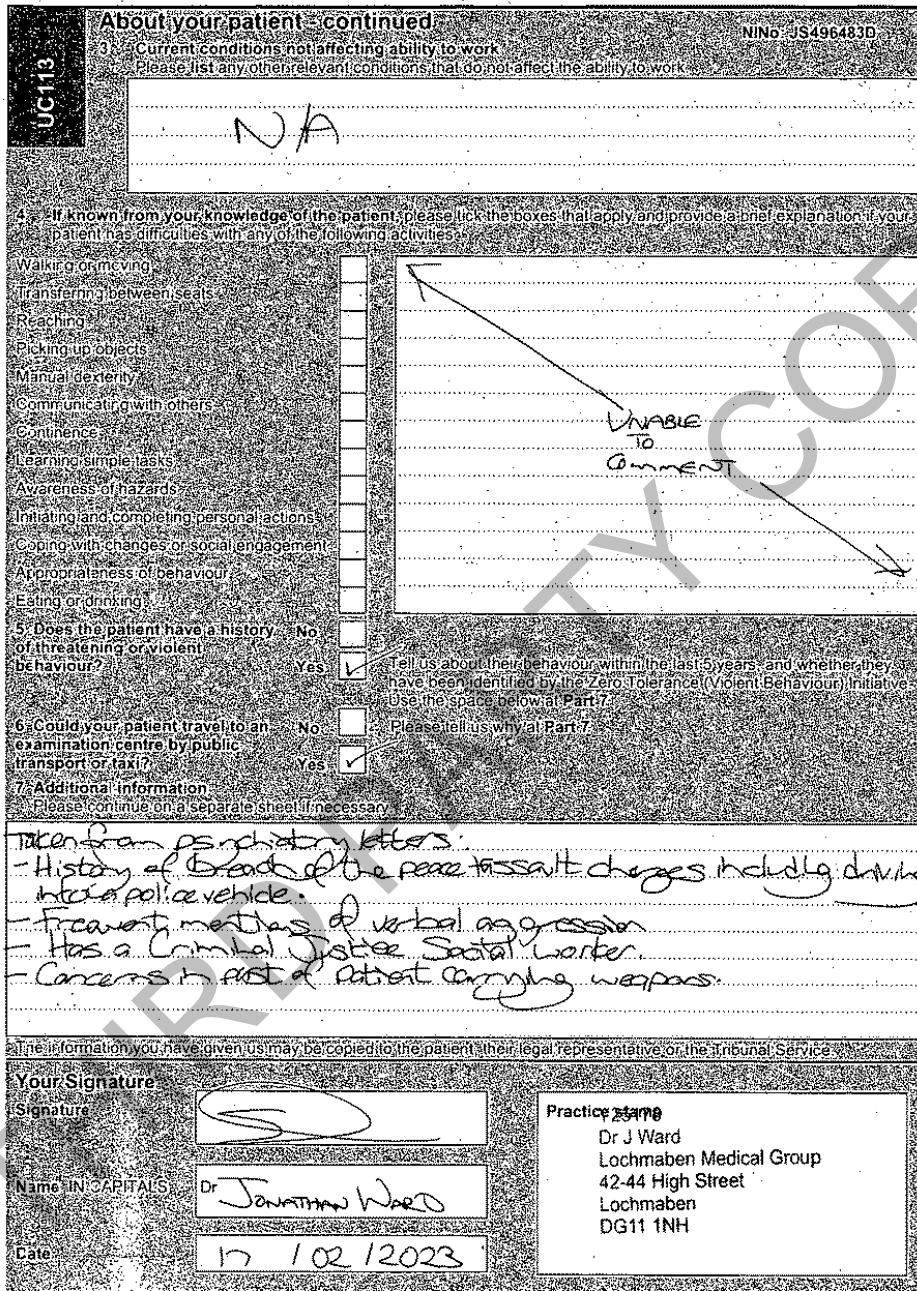 UC113
About your patient - continued
NINo: JS496483D
3. Current conditions not affecting ability to work
Please list any other relevant conditions that do not affect the ability to work
N/A
4. If known from your knowledge of the patient, please tick the boxes that apply and provide a brief explanation if your
patient has difficulties with any of the following activities
Walking or moving
Transferring between seats
Reaching
Picking up objects
Manual dexterity
Communicating with others
Continence
Learning simple tasks
Awareness of hazards
Initiating and completing personal actions
Coping with changes or social engagement
Appropriateness of behaviour
Eating or drinking
UNABLE
TO
COMMENT
5. Does the patient have a history No
of threatening or violent
behaviour? Yes ✓
Tell us about their behaviour within the last 5 years and whether they
have been identified by the Zero Tolerance (Violent Behaviour) Initiative
Use the space below at Part 7
6. Could your patient travel to an No
Please tell us why at Part 7
examination centre by public
transport or taxi? Yes ✓
7. Additional information
Please continue on a separate sheet if necessary
Taken from psychiatry letters:
- History of breach of the peace + assault charges including
into a police vehicle.
- Frequent mentions of verbal aggression
- Has a Criminal Justice Social Worker.
- Concerns in past of patient carrying weapons.
The information you have given us may be copied to the patient, their legal representative or the Tribunal Service
Your Signature
Signature
Name IN CAPITALS Dr JONATHAN WARD
Date 17 / 02 / 2023
Practice stamp
Dr J Ward
Lochmaben Medical Group
42-44 High Street
Lochmaben
DG11 1NH
THIRD PARTY COP